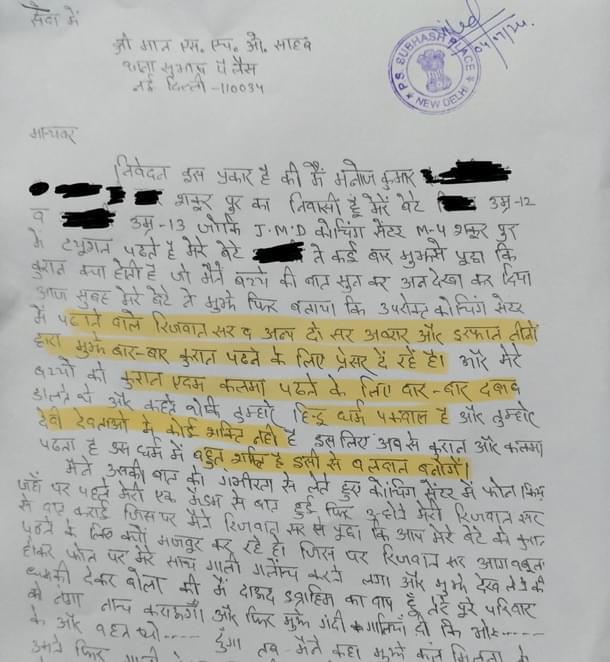 सेवा में
श्री मान एस. एच. ओ. साहब
थाना सुभाष पैलेस
नई दिल्ली -110034
P.S. SUBHASH PLACE
NEW DELHI
04/7/24
मान्यवर
निवेदन इस प्रकार है की मैं मनोज कुमार
शकूर पुर का निवासी हूँ मेरे बेटे उम्र-12
व उम्र-13 जोकि J.M.D कोचिंग सेंटर M-4 शकूर पुर
में ट्यूशन पढते है मेरे बेटे ने कई बार मुझसे पुछा कि
कुरान क्या होती है जो मैने बच्चे की बात सुन कर अनदेखा कर दिया
आज सुबह मेरे बेटे ने मुझे फिर बताया कि उपरोक्त कोचिंग सेंटर
में पढाने वाले रिजवान सर व अन्य दो सर अबरार और इरफान तीनों
द्वारा मुझे बार-बार कुरान पढने के लिए प्रेसर दे रहें है। और मेरे
बच्चों को कुरान एवम कलमा पढने के लिए बार-बार दबाव
डालते थे और कहते थेकि तुम्हारे हिन्दु धर्म बकवास है और तुम्हारे
देवी देवताओ में कोई शक्ति नही है इस लिए अब से कुरान और कलमा
पढना है इस धर्म में बहुत शक्ति है इसी से बलवान बनोगे।
मैने उसकी बात को गंभीरता से लेते हुए कोचिंग सेंटर में फोन किया
जहाँ पर पहले मेरी एक मैडम से बात हुई फिर उन्होने मेरी रिजवान सर
से बात कराई जिस पर मैने रिजवान सर से पुछा कि आप मेरे बेटे को कुरान
पढने के लिए क्यों मजबूर कर रहे हो जिस पर रिजवान सर आग बबूला
होकर फोन पर मेरे साथ गाली गलौच करने लगा और मुझे देख लेने की
धमकी देकर बोला की मैं दाऊद इब्राहिम का बाप हूँ तेरे पूरे परिवार
को नंगा नाच कराऊँगा और फिर मुझे गंदी गालियाँ दी कि
के और बहन चो..... दुँगा तब मैने कहा मुझे
उसने फिर गाली